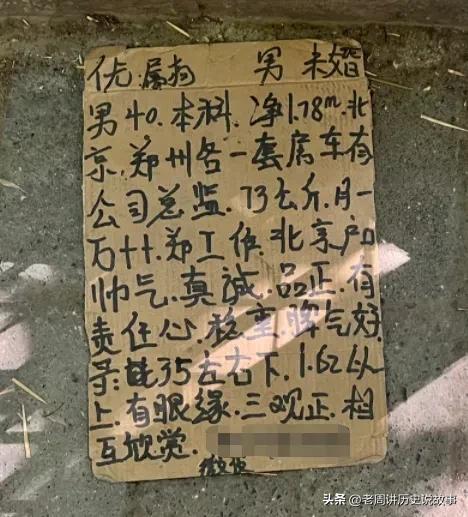 优.属狗 男 未婚
男40.本科.净1.78m.北
京.郑州各一套房车有
公司总监.73公斤.月一
万++.郑工作.北京户
帅气.真誠.品正.有
责任心.稳重.脾气好
寻:35左右下.1.62以
上.有眼缘.三观正.相
互欣赏.
微信
头条 @老周讲历史说故事